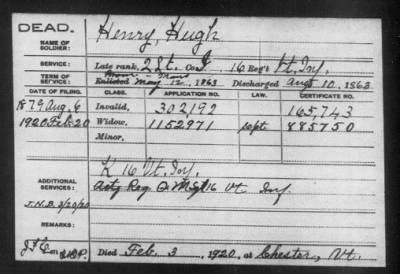 DEAD.
NAME OF SOLDIER: Henry, Hugh
SERVICE: Late rank, 2 St. Co. G, 16 Reg't Vt. Inf.
TERM OF SERVICE: Enlisted May 12, 1863 Discharged Aug 10, 1863
DATE OF FILING. CLASS. APPLICATION NO. LAW. CERTIFICATE NO.
1879 Aug. 6 Invalid, 302,192 165,743
1920 Feb. 20 Widow, 1152971 sept. 885750
Minor,
K 16 Vt. Inf.
ADDITIONAL SERVICES: Actg Reg. Q M Sgt 16 Vt Inf.
J.N.B. 2/20/20
Died Feb. 3, 1920, at Chester, Vt.